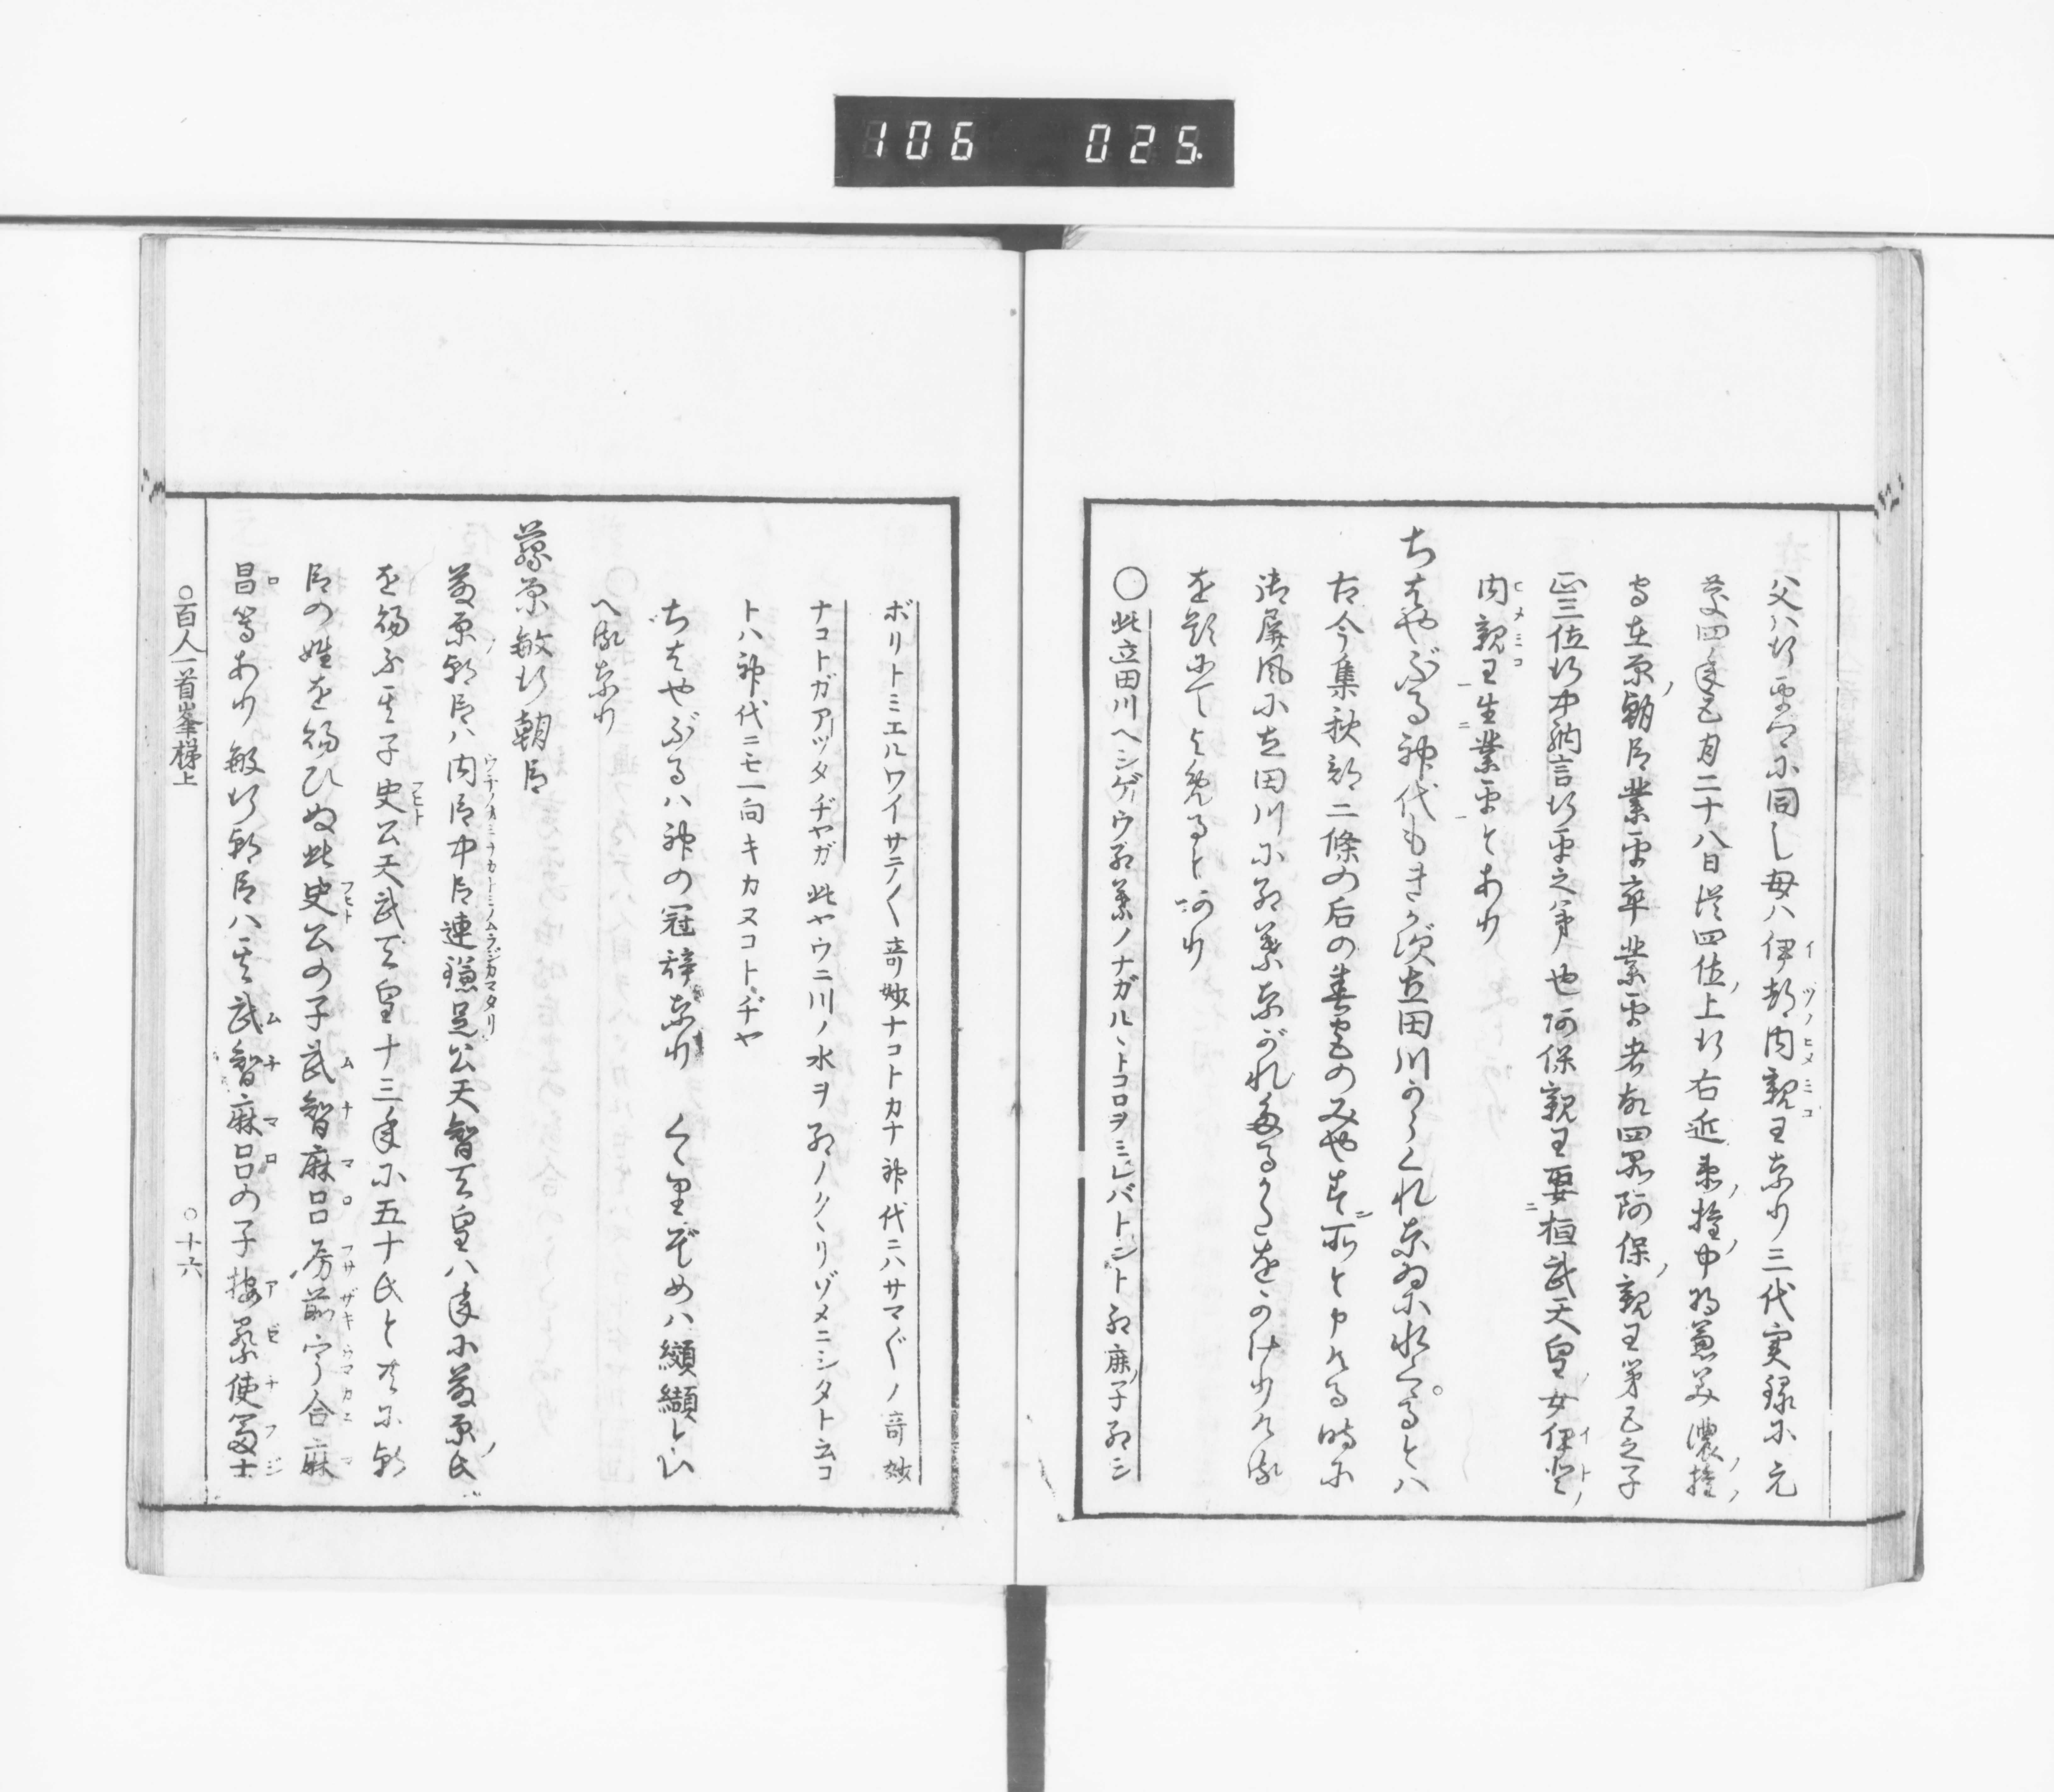 106 025
父ハ行平卿に同し母ハ伊都内親王なり三代実録に元
慶四年五月二十八日従四位上行右近衛権中将兼美濃権
守在原朝臣業平卒業平者故四品阿保親王第五之子
正三位行中納言行平之弟也阿保親王娶桓武天皇女伊登
内親王生業平とあり
ちはやぶる神代もきかず立田川からくれなゐに水くゝるとハ
古今集秋部二條の后の春宮のみやす所と申ける時に
御屏風に立田川に紅葉ながれたるかたをかけりける
を題にてよめるとあり
〇此立田川ヘシゲウ紅葉ノナガルヽトコロヲミレバトント紅鹿子紅シ
ボリトミエルワイサテ〱奇妙ナコトカナ神代ニハサマ〲ノ奇妙
ナコトガアツタヂヤガ此ヤウニ川ノ水ヲ紅ノクヽリゾメニシタト云コ
トハ神代ニモ一向キカヌコトヂヤ
ちはやぶるハ神の冠辞なり　くゝりぞめハ纐纈といへるなり
藤原敏行朝臣
藤原朝臣ハ内臣中臣連鎌足公天智天皇八年に藤原氏
を賜ふ其子史公天武天皇十三年に五十氏と共に朝
臣の姓を賜ひぬ此史公の子武智麻呂房前宇合麻
呂等あり敏行朝臣ハ其武智麻呂の子按察使富士
○百人一首峯梯上
○十六